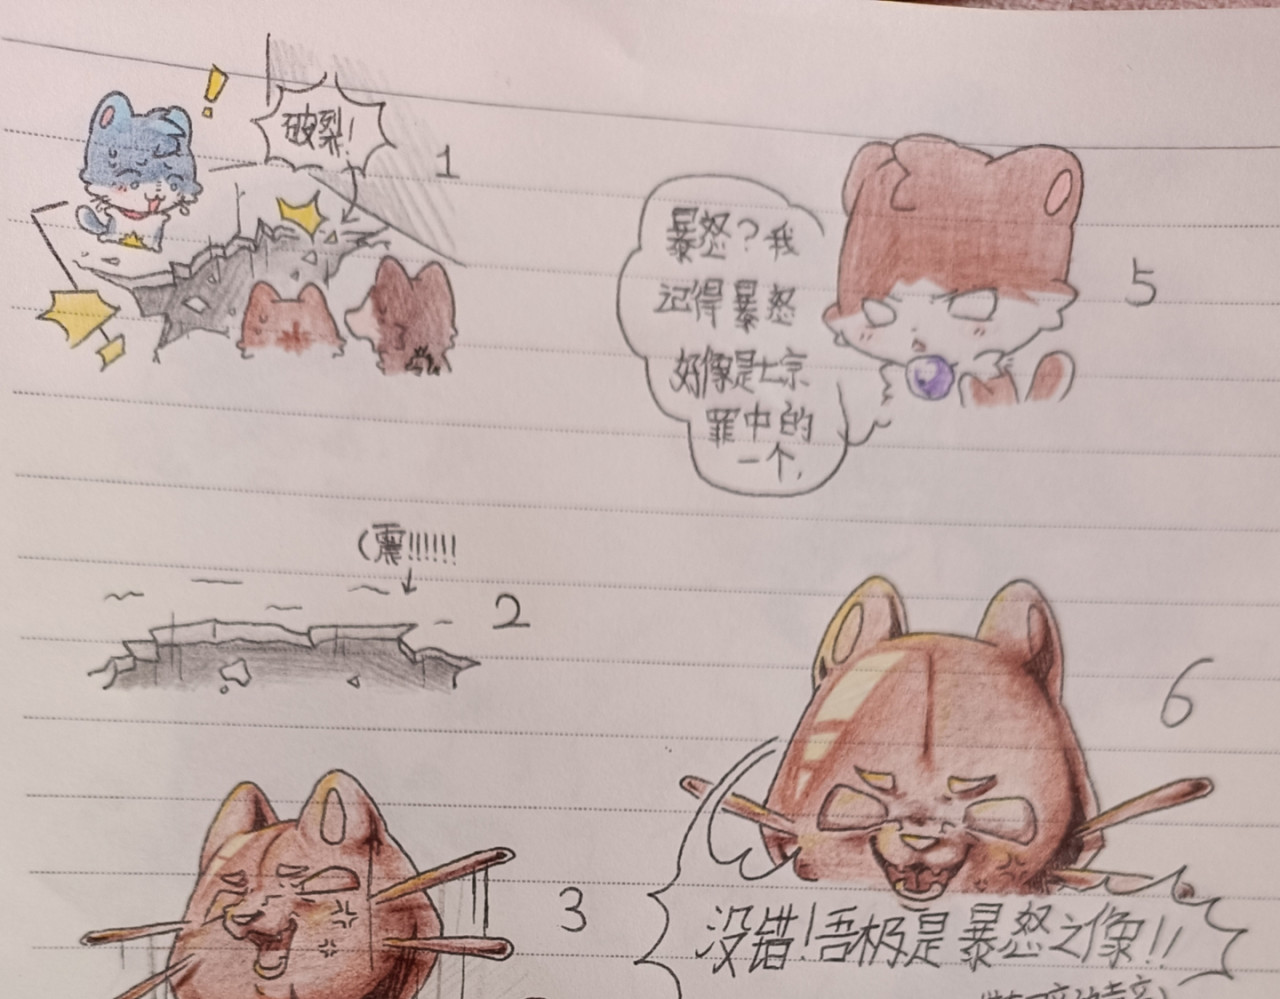 破裂!
1
(震!!!!!!
2
3
暴怒?我
记得暴怒
好像是七宗
罪中的
一个,
5
6
没错!吾极是暴怒之像!!